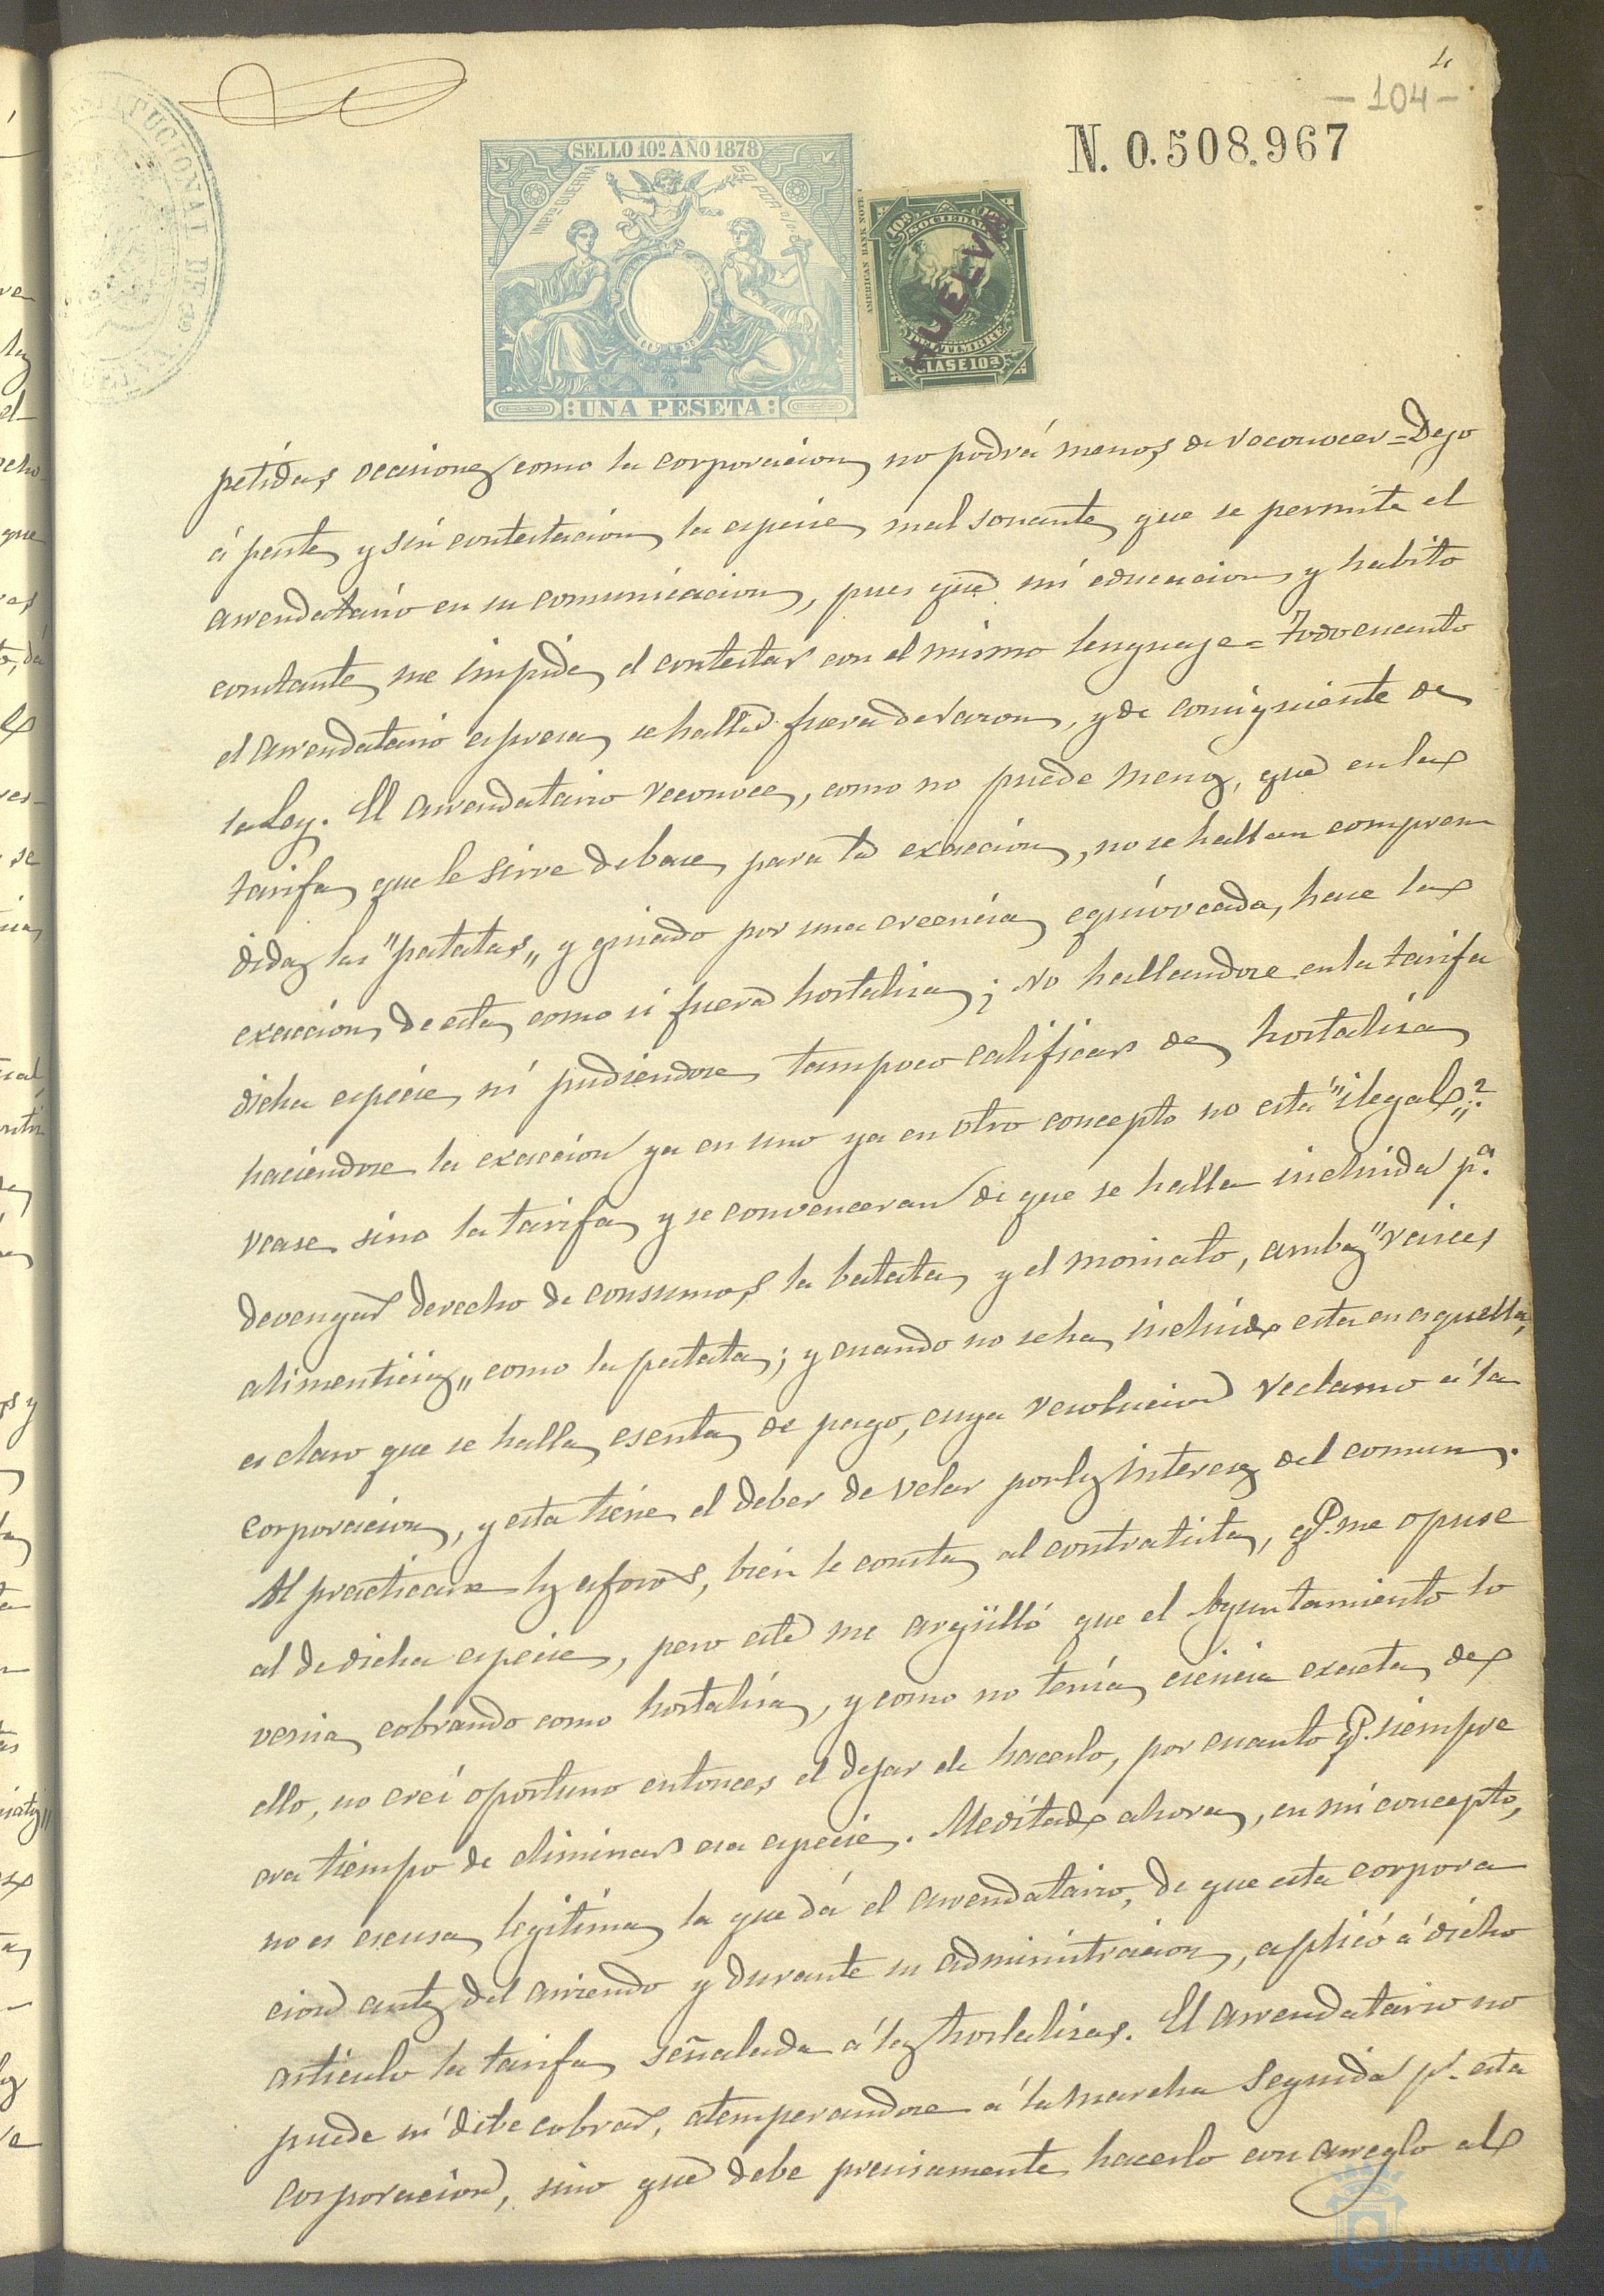 4
- 104 -
N. 0.508.967
SELLO 10º AÑO 1878
IMPTO GUERRA
50 POR 0/0
UNA PESETA
AMERICAN BANK NOTE
10ª SOCIEDAD 10ª
HUELVA
DEL TIMBRE
CLASE 10ª
petidas ocasiones como la corporacion no podrá menos de reconocer = Dejo
á parte y sin contestación la especie mal sonante que se permite el
arrendatario en su comunicacion, pues que mi educacion y habito
constante me impide el contestar con el mismo lenguaje = Todo cuanto
el arrendatario espresa se halla fuera de razon, y de consiguiente de
la Ley. El arrendatario reconoce, como no puede menos, que en la
tarifa que le sirve de base para la exaccion, no se hallan compren
didas las "patatas" y guiado por una creencia equivocada, hace la
exaccion de esta como si fuera hortaliza; No hallandose en la tarifa
dicha especie ni pudiendose tampoco calificar de hortaliza
haciendose la exaccion ya en uno ya en otro concepto no está "ilegal"?
vease sino la tarifa y se convenceran de que se halla incluida pª
devengar derecho de consumos la batata y el moniato, ambas "raices
alimenticias" como la patata; y cuando no se ha incluido esta en aquella,
es claro que se halla esenta de pago, cuya resolucion reclamo á la
corporacion, y esta tiene el deber de velar por los intereses del comun.
Al practicarse los aforos, bien le consta al contratista, qe. me opuse
al de dicha especie, pero este me argülló que el Ayuntamiento lo
venia cobrando como hortaliza, y como no tenía ciencia exacta de
ello, no creí oportuno entonces el dejar de hacerlo, por cuanto qe. siempre
era tiempo de eliminar esa especie. Meditado ahora, en mi concepto,
no es escusa legitima la que dá el arrendatario, de que esta corpora
cion antes del arriendo y durante su administracion, aplicó á dicho
articulo la tarifa señalada á las hortalizas. El arrendatario no
puede ni debe cobrar, atemperandose á la marcha seguida pr. esta
corporacion, sino que debe precisamente hacerlo con arreglo al
HUELVA